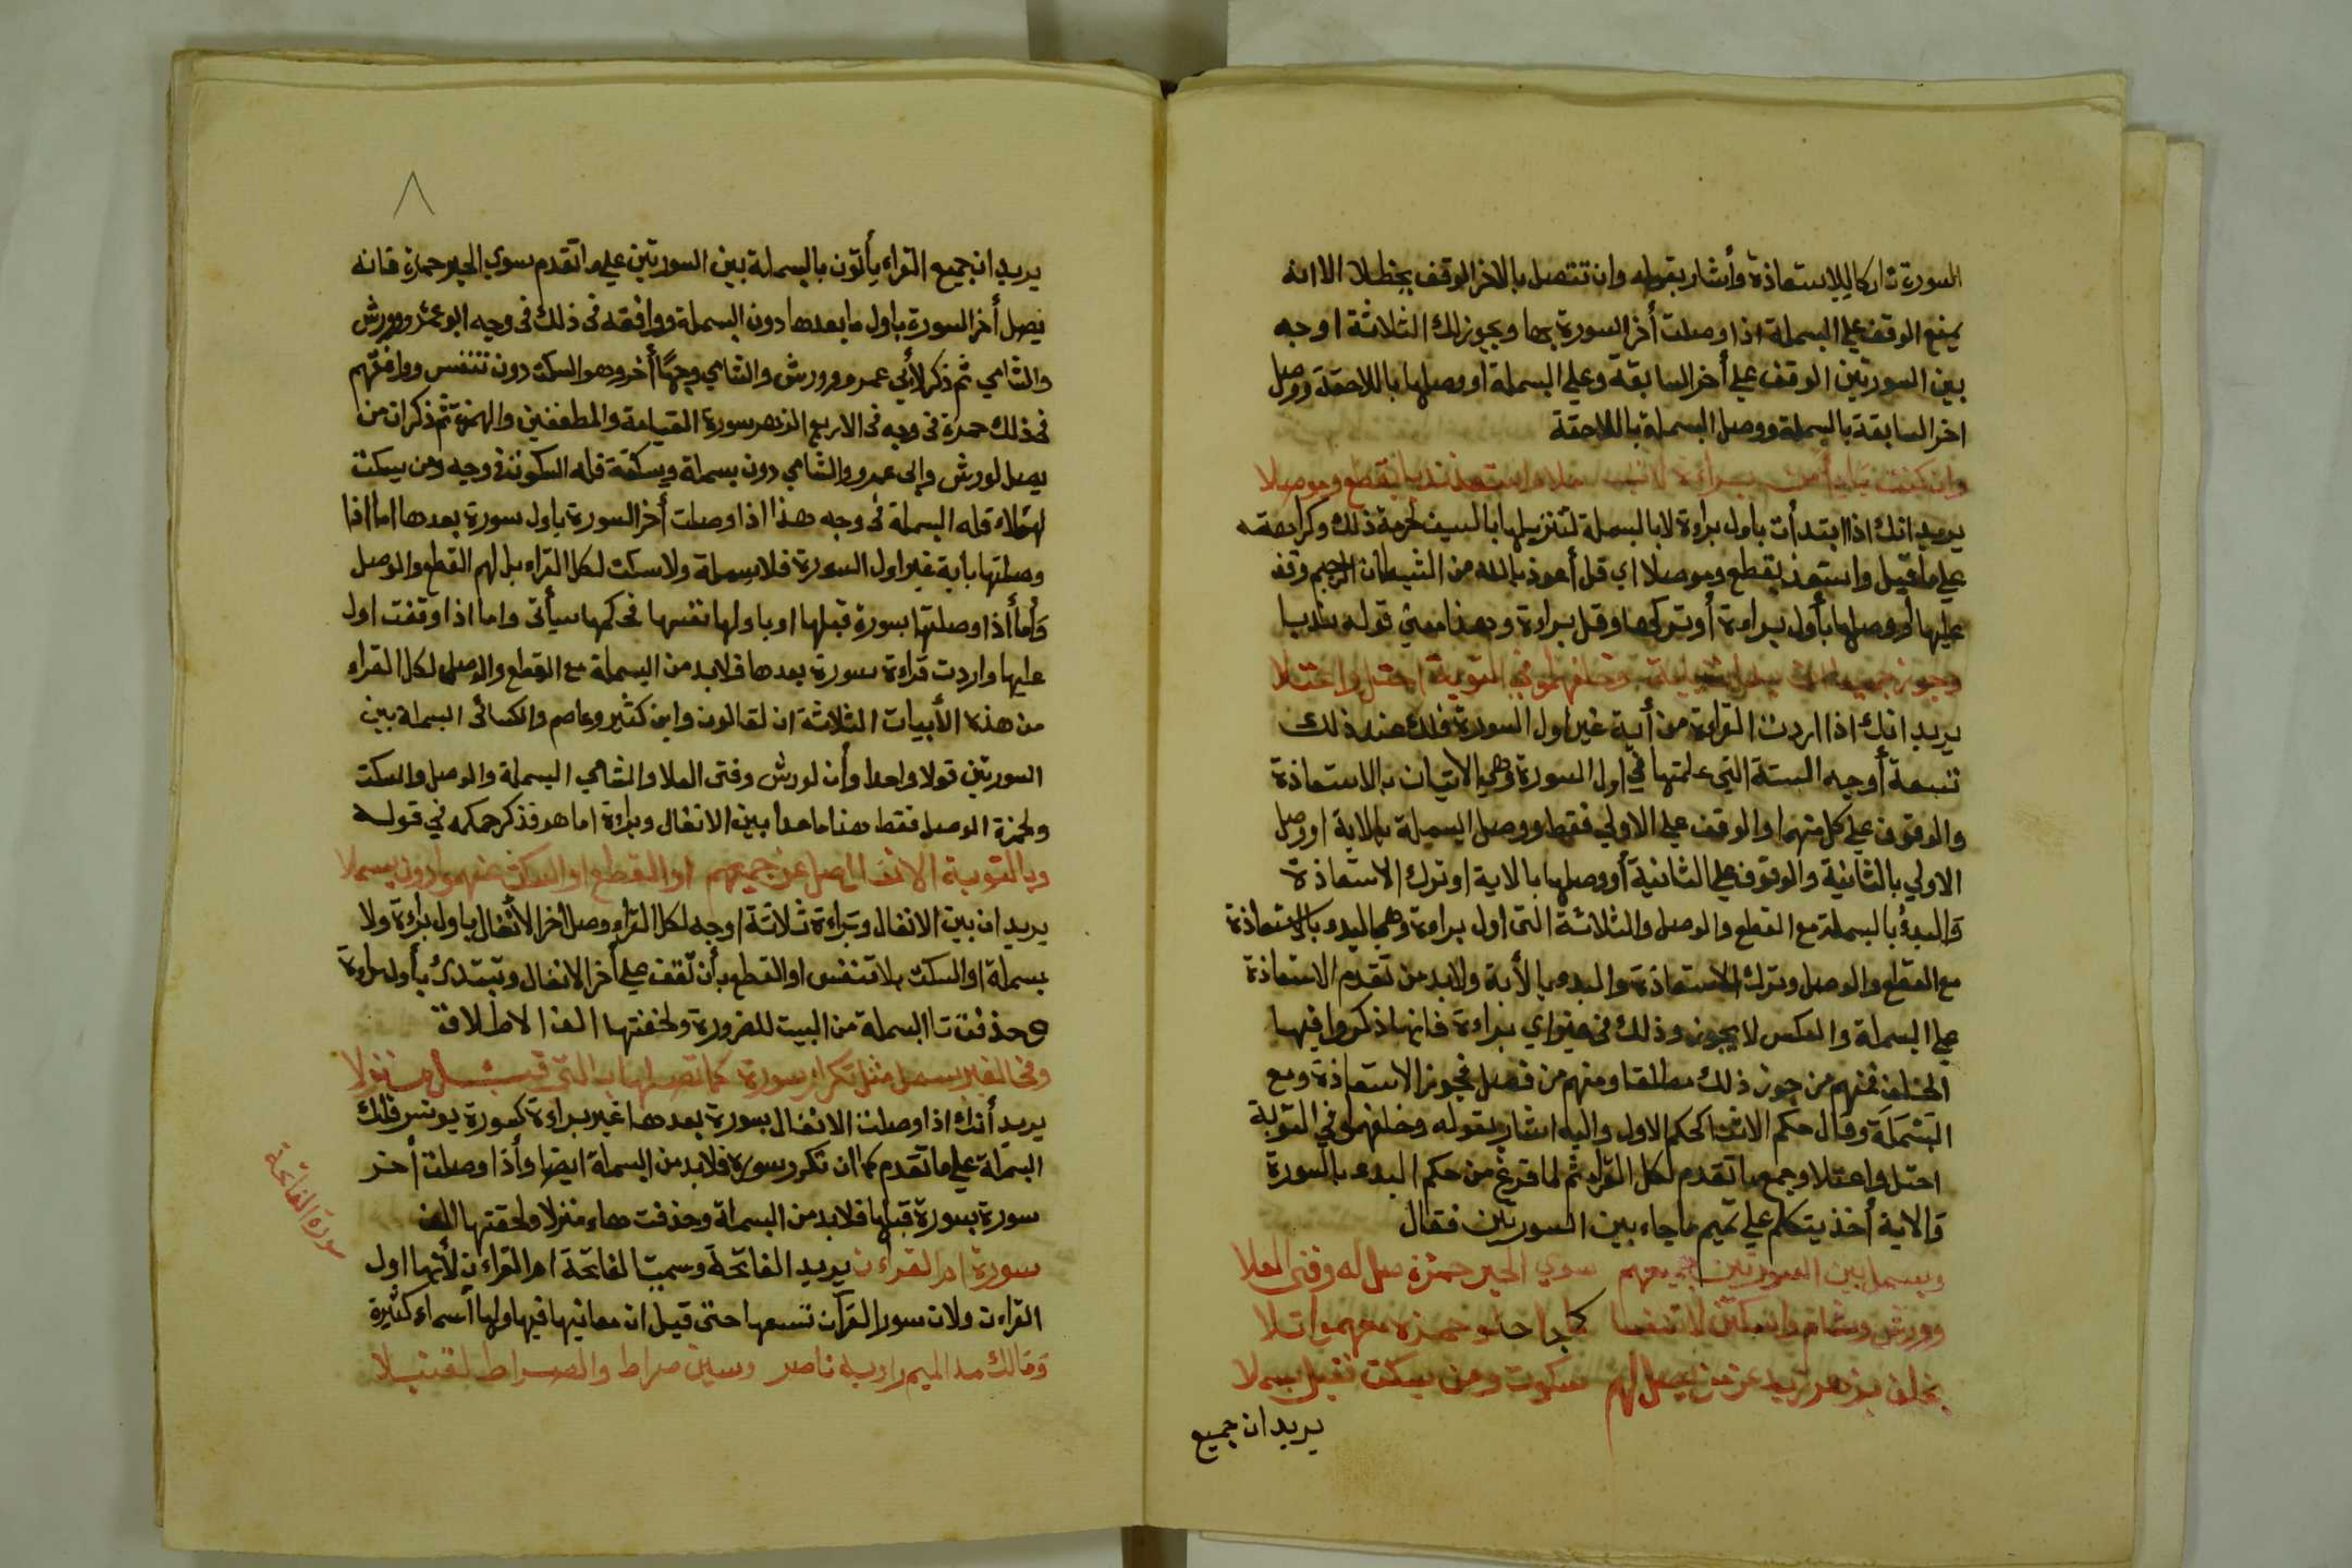 السورة تاركا للاستعاذة وأشار بقوله وان تتصل بالاخر الوقف يحظلا الا انه
يمنع الوقف علي البسملة اذا وصلت أخر السورة بها ويجوز لك الثلاثة اوجه
بين السورتين الوقف علي أخر السابقة وعلي البسملة او وصلها باللاحقة ووصل
اخر السابقة بالبسملة ووصل البسملة باللاحقة
وان كنت باول براءة بقطع وموصلا
يريد انك اذا ابتدأت باول براءة لا بالبسملة لتنزيلها بالسيف لحرمة ذلك وكراهته
علي ما قيل واستعذ بقطع وموصلا اي قل أعوذ بالله من الشيطان الرجيم وقف
عليها أو وصلها بأول براءة أو تركها وقل براءة وهذا معني قوله ندبا
وخلفهمو في التوبة احتل واعتلا
يريد انك اذا اردت القراءة من أية غير اول السورة فلك عند ذلك
تسعة أوجه الستة التي علمتها في اول السورة وهي الاتيان بالاستعاذة
والوقوف علي كل منهما والوقف علي الاولي فقط ووصل البسملة بالاية او وصل
الاولي بالثانية والوقوف علي الثانية أو وصلها بالاية او ترك الاستعاذة
والبدؤ بالبسملة مع القطع والوصل والثلاثة التي اول براءة وهي البدء بالاستعاذة
مع القطع والوصل وترك الاستعاذة والبدء بالأية ولابد من تقدم الاستعاذة
علي البسملة والعكس لا يجوز وذلك في اي براءة فانها ذكروا فيها
الخلف فمنهم من جوز ذلك مطلقا ومنهم من فصل فجوز الاستعاذة ومع
البسملة وقال حكم الاثنا كحكم الاول واليه اشار بقوله وخلفهمو في التوبة
احتل واعتلا وجمع ما تقدم لكل القراء ثم لما فرغ من حكم البدء بالسورة
والاية أخذ يتكلم علي تميم ما جاء بين السورتين فقال
وبسمل بين السورتين جميعهم سوي الحبر حمزة صل له وفتى العلا
وورش وشام واسكتن لا تنفسا كذا حمزة معهموا تلا
بخلف بزهر سكوت ومن يسكت بسملا
يريد ان جميع
٨
يريد ان جميع القراء يأتون بالبسملة بين السورتين علي ما تقدم سوي الحبر حمزة فانه
يصل أخر السورة باول ما بعدها دون البسملة ووافقه في ذلك في وجه ابو عمرو وورش
والشامي ثم ذكر لأبي عمرو وورش والشامي وجها أخر وهو السكت دون تنفس ووافقهم
في ذلك حمزة في وجه في الاربع الزهر سورة القيامة والمطففين والهمزة ثم ذكر ان من
يصل لورش وابي عمرو والشامي دون بسملة وسكتة فله السكوت في وجه ومن يسكت
لهؤلاء فله البسملة في وجه هذا اذا وصلت أخر السورة باول سورة بعدها اما اذا
وصلتها باية غير اول السورة فلا بسملة ولا سكت لكل القراء بل لهم القطع والوصل
وأما أذا وصلتها بسورة قبلها او باولها نفسها فحكمها سيأتي واما اذا وقفت اول
عليها واردت قراءة سورة بعدها فلابد من البسملة مع القطع والوصل لكل القراء
من هذه الأبيات الثلاثة ان لقالون وابن كثير وعاصم والكسائى البسملة بين
السورتين قولا واحدا وأن لورش وفتى العلا والشامي البسملة والوصل والسكت
ولحمزة الوصل فقط هذا ما عدا بين الانفال وبراءة اما هو فذكر حكمه في قوله
وبالتوبة الانفال صل عن جميعهم او القطع او السكت عنهموا دون بسملا
يريد ان بين الانفال وبراءة ثلاثة اوجه لكل القراء وصل أخر الأنفال باول براءة ولا
بسملة او السكت بلا تنفس او القطع بأن تقف علي أخر الانفال وتبتدئ بأول براءة
وحذفت تا البسملة من البيت للضرورة ولحقتها الف الاطلاق
وفي الغير بسمل مثل تكرار سورة كما تصلها بالتي قبل منزلا
يريد أنك اذا وصلت الانفال بسورة بعدها غير براءة كسورة يونس فلك
البسملة علي ما تقدم كما ان تكرر سورة فلابد من البسملة ايضا وأذا وصلت أخر
سورة بسورة قبلها فلابد من البسملة وحذفت هاء منزلا ولحقتها الف
سورة ام القراءن يريد الفاتحة وسميت الفاتحة ام القراءن لأنها اول
القراءن ولان سور القرآن تتبعها حتى قيل ان معانيها فيها ولها أسماء كثيرة
ومالك مد الميم راويه ناصر وسين صراط والصراط لقنبلا
سورة الفاتحة